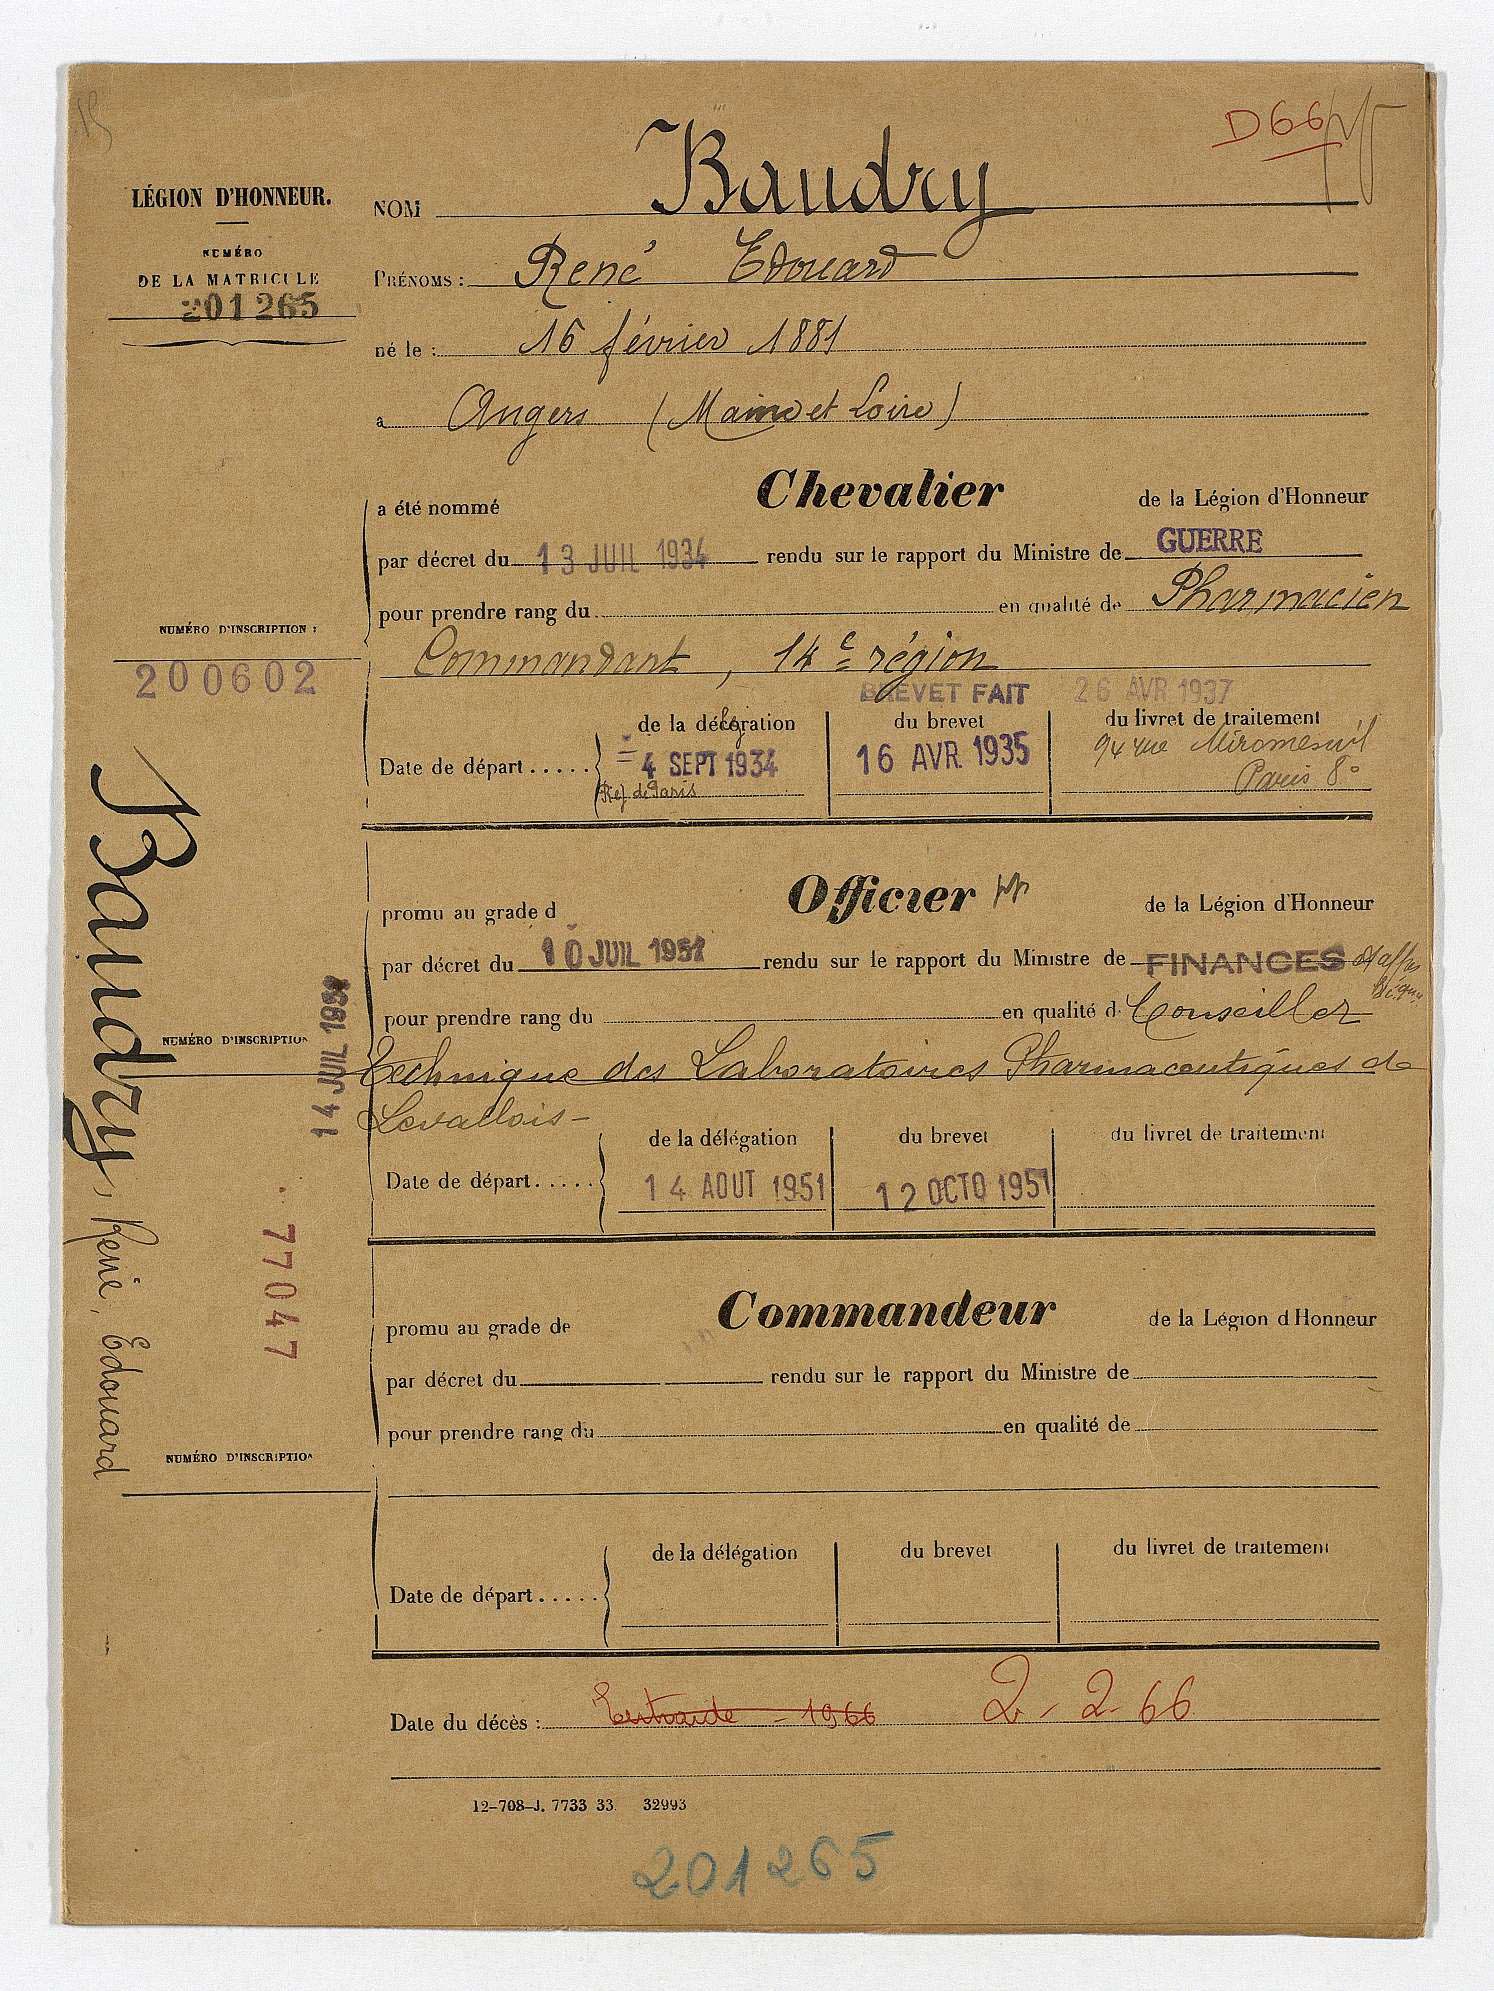 D66
LÉGION D'HONNEUR.
NUMÉRO
DE LA MATRICULE
201265
NOM Baudry
PRÉNOMS : René Edouard
né le : 16 février 1881
à Angers (Maine et Loire)
a été nommé Chevalier de la Légion d'Honneur
par décret du 13 JUIL 1934 rendu sur le rapport du Ministre de GUERRE
pour prendre rang du en qualité de Pharmacien
NUMÉRO D'INSCRIPTION :
200602
Commandant, 14e région
BREVET FAIT 26 AVR 1937
de la décoration du brevet du livret de traitement
Date de départ..... 4 SEPT 1934 16 AVR. 1935 94 rue Miromesnil
Paris 8e
Pref. de Paris
promu au grade d Officier de la Légion d'Honneur
par décret du 10 JUIL 1951 rendu sur le rapport du Ministre de FINANCES
pour prendre rang du en qualité d Conseiller
NUMÉRO D'INSCRIPTION
Technique des Laboratoires Pharmaceutiques de
Levallois -
14 JUIL 1934
de la délégation du brevet du livret de traitement
Date de départ..... 14 AOUT 1951 12 OCTO 1951
77047
Baudry, René, Edouard
promu au grade de Commandeur de la Légion d'Honneur
par décret du rendu sur le rapport du Ministre de
pour prendre rang du en qualité de
NUMÉRO D'INSCRIPTION
de la délégation du brevet du livret de traitement
Date de départ.....
Date du décès : 1966 2-2-66
12-708-J. 7733 33. 32993
201265